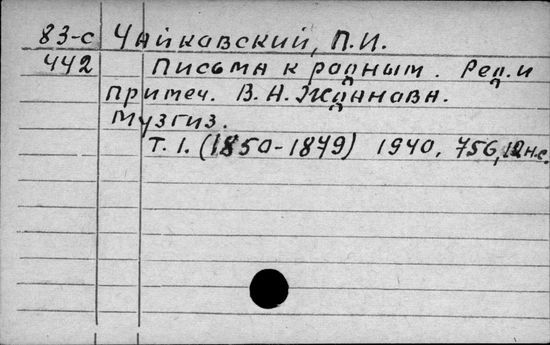 83-с Чайковский, П.И.
442 Письма к родным. Ред. и
примеч. В. А. Жданова.
Музгиз.
Т. 1. (1850-1879) 1940, 756, 12 н.с.